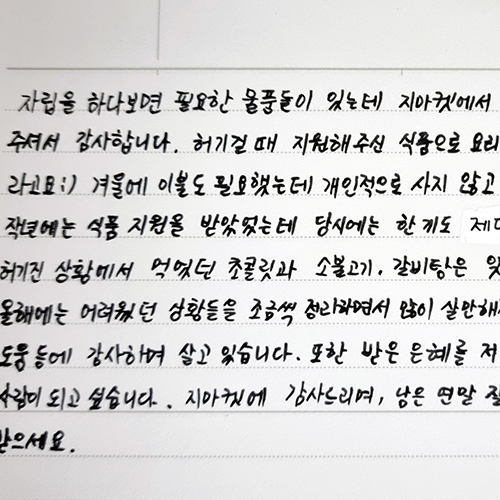 자립을 하다보면 필요한 물품들이 있는데 지마켓에서
주셔서 감사합니다. 허기질 때 지원해주신 식품으로 요리
라고요:) 겨울에 이불도 필요했는데 개인적으로 사지 않고
작년에는 식품 지원을 받았었는데 당시에는 한 끼도 제대
허기진 상황에서 먹었던 초콜릿과 소불고기, 갈비탕은
올해에는 어려웠던 상황들을 조금씩 정리하면서 많이 살만해
도움 등에 감사하며 살고 있습니다. 또한 받은 은혜를 저
사람이 되고 싶습니다. 지마켓에 감사드리며, 남은 연말 잘
받으세요.